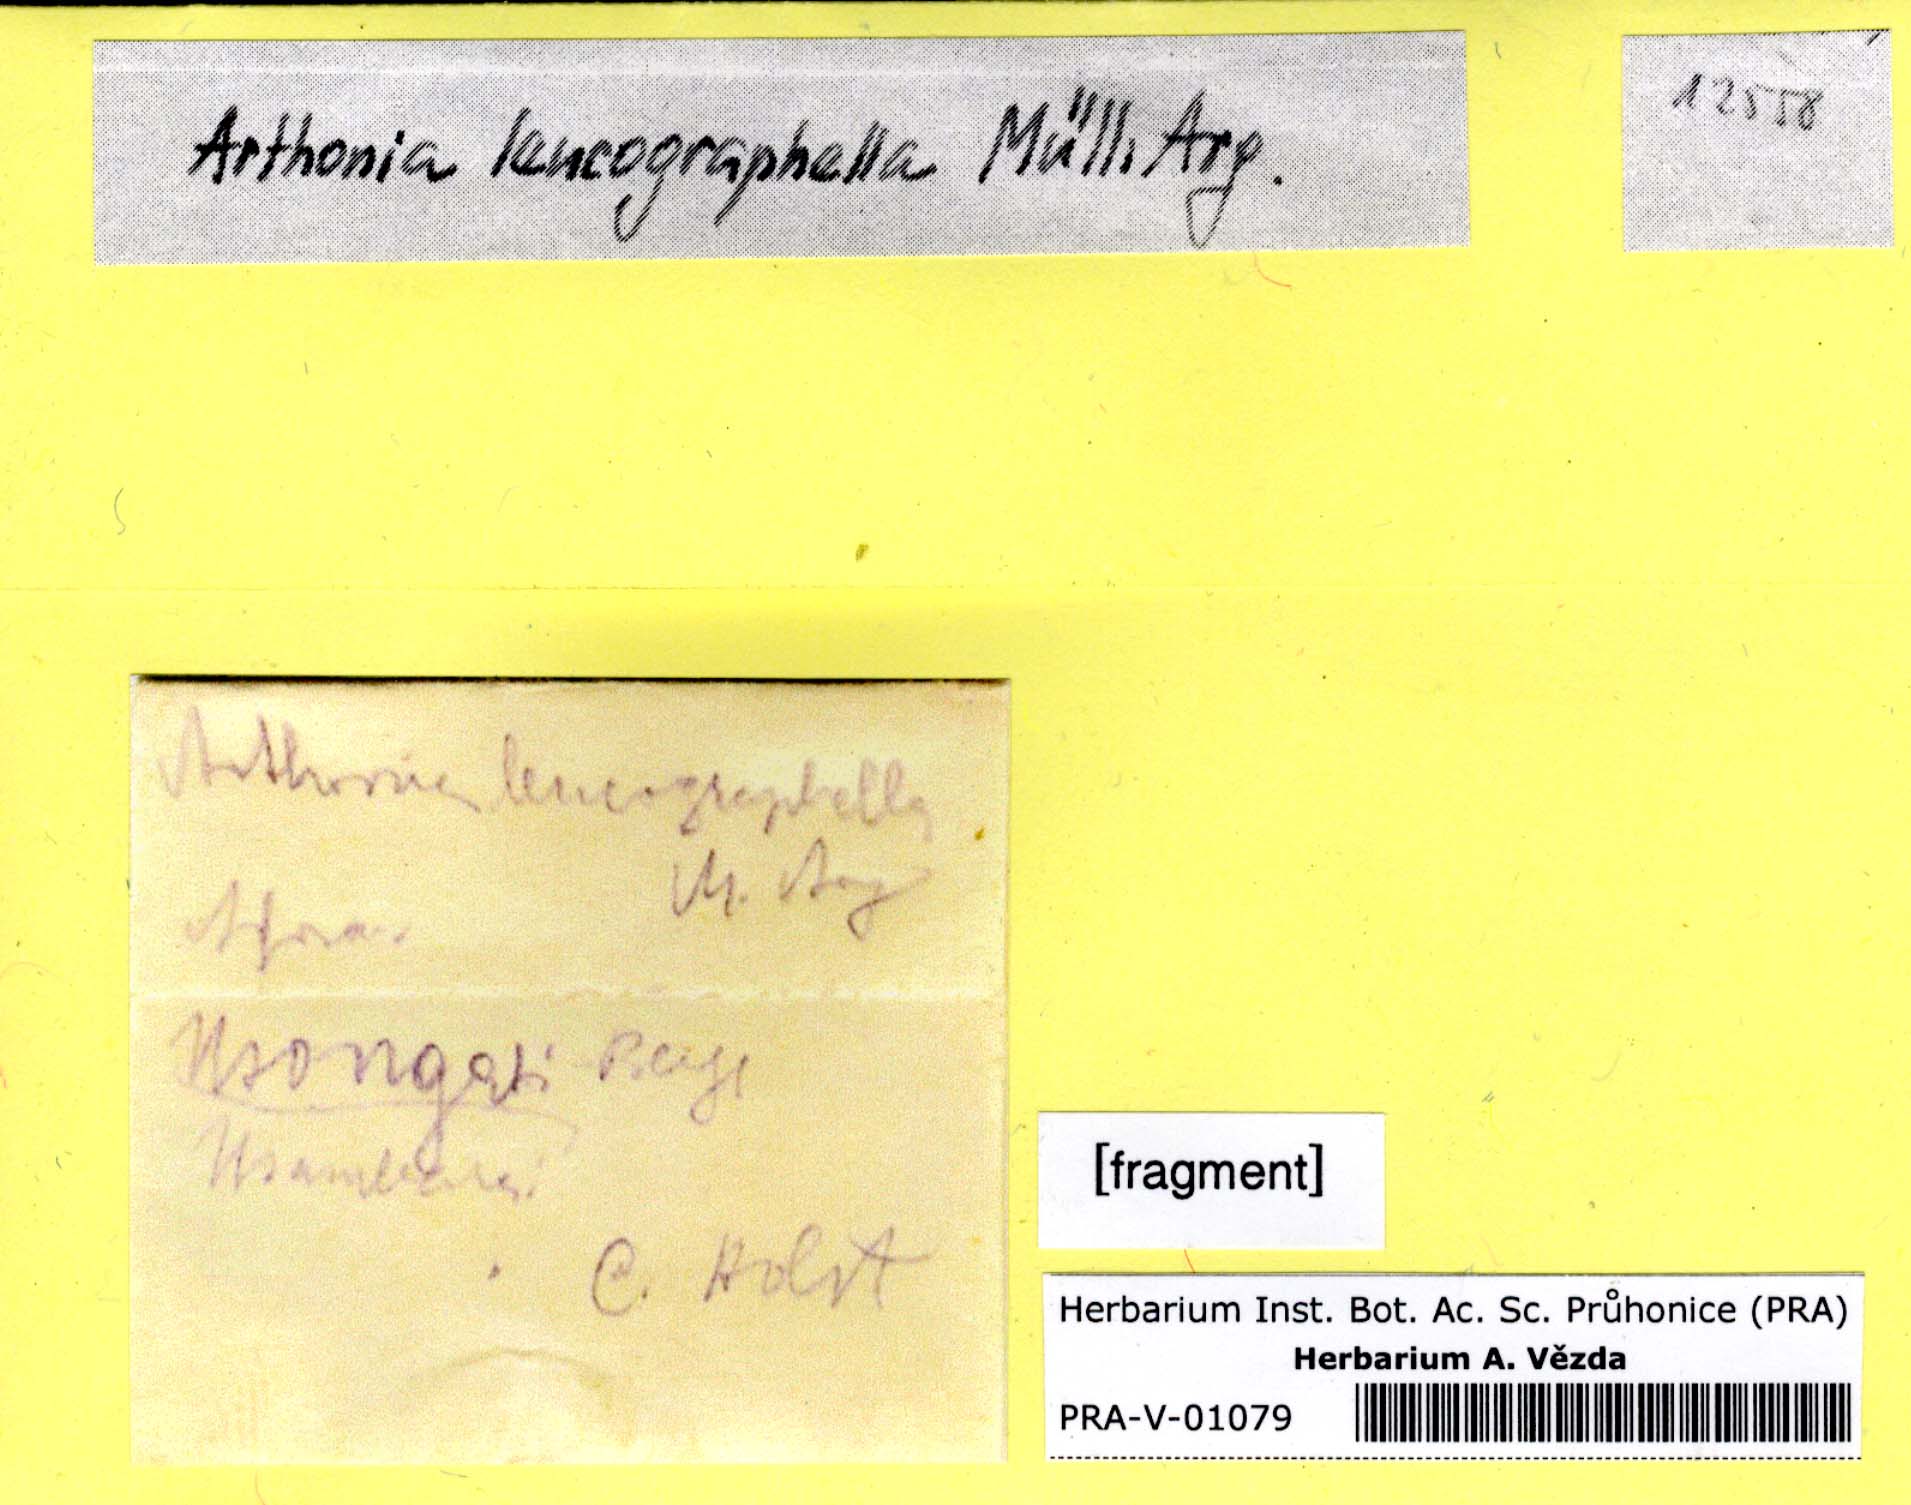 Arthonia leucographella Müll. Arg.
12558
Arthonia leucographella
M. Arg
C. Holst
[fragment]
Herbarium Inst. Bot. Ac. Sc. Průhonice (PRA)
Herbarium A. Vězda
PRA-V-01079